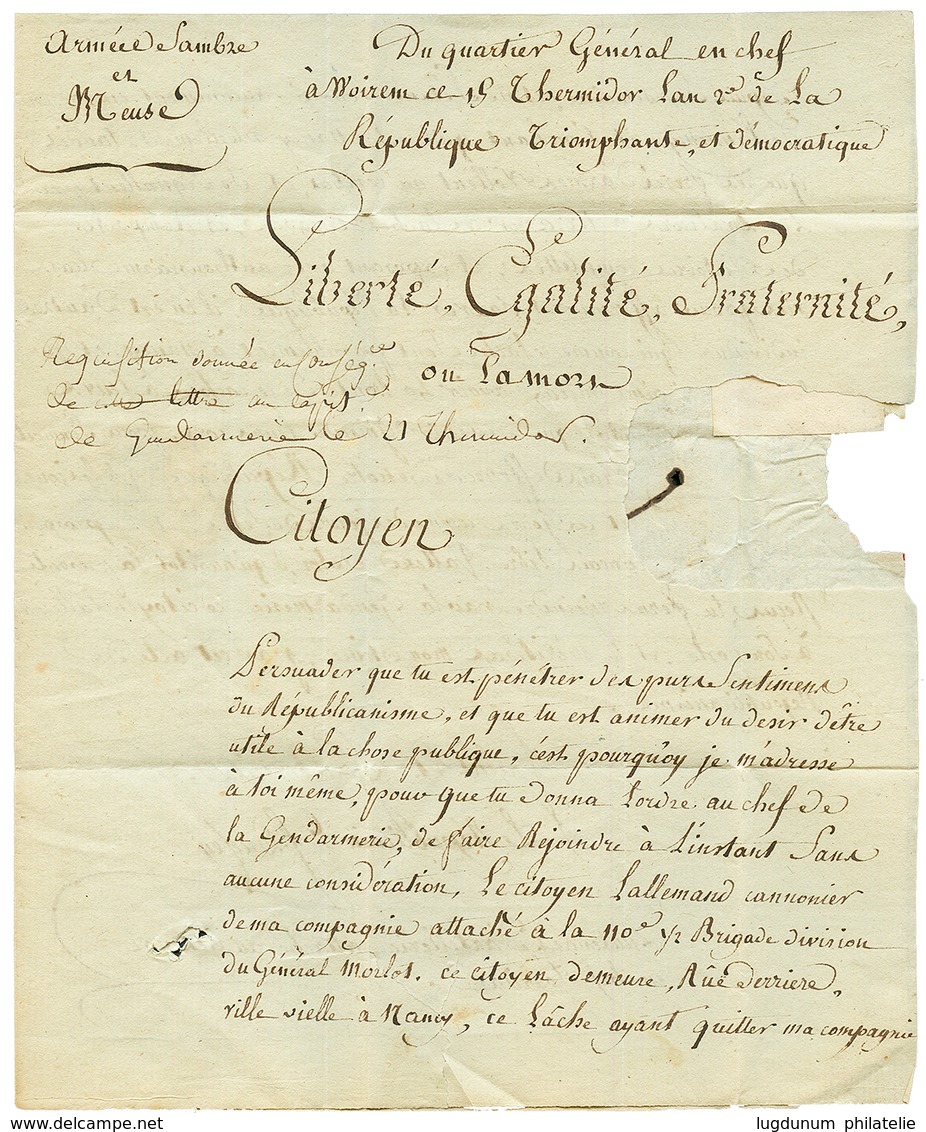 Armée de Sambre
et
Meuse
Du quartier Général en chef
à Woirem ce 19 Thermidor Lan 2e de La
République Triomphante, et démocratique
Liberté, Egalité, Fraternité,
ou La mort
Requisition donnée en conség.ce
de cette lettre au capit
de Gendarmerie le 21 Thermidor.
Citoyen
Persuader que tu est pénétrer des purs Sentimens
du Républicanisme, et que tu est animer du desir d'être
utile à la chose publique, c'est pourquoy je m'adresse
à toi même, pour que tu donna Lordre au chef de
la Gendarmerie, de faire Rejoindre à L'instant Sans
aucune considération, Le citoyen Lallemand cannonier
de ma compagnie attaché à la 110e 1/2 Brigade division
du Général Morlot. ce citoyen demeure, Rûë derriere,
ville vielle à Nancy, ce Lâche ayant quitter ma compagnie
www.delcampe.net
lugdunum philatelie